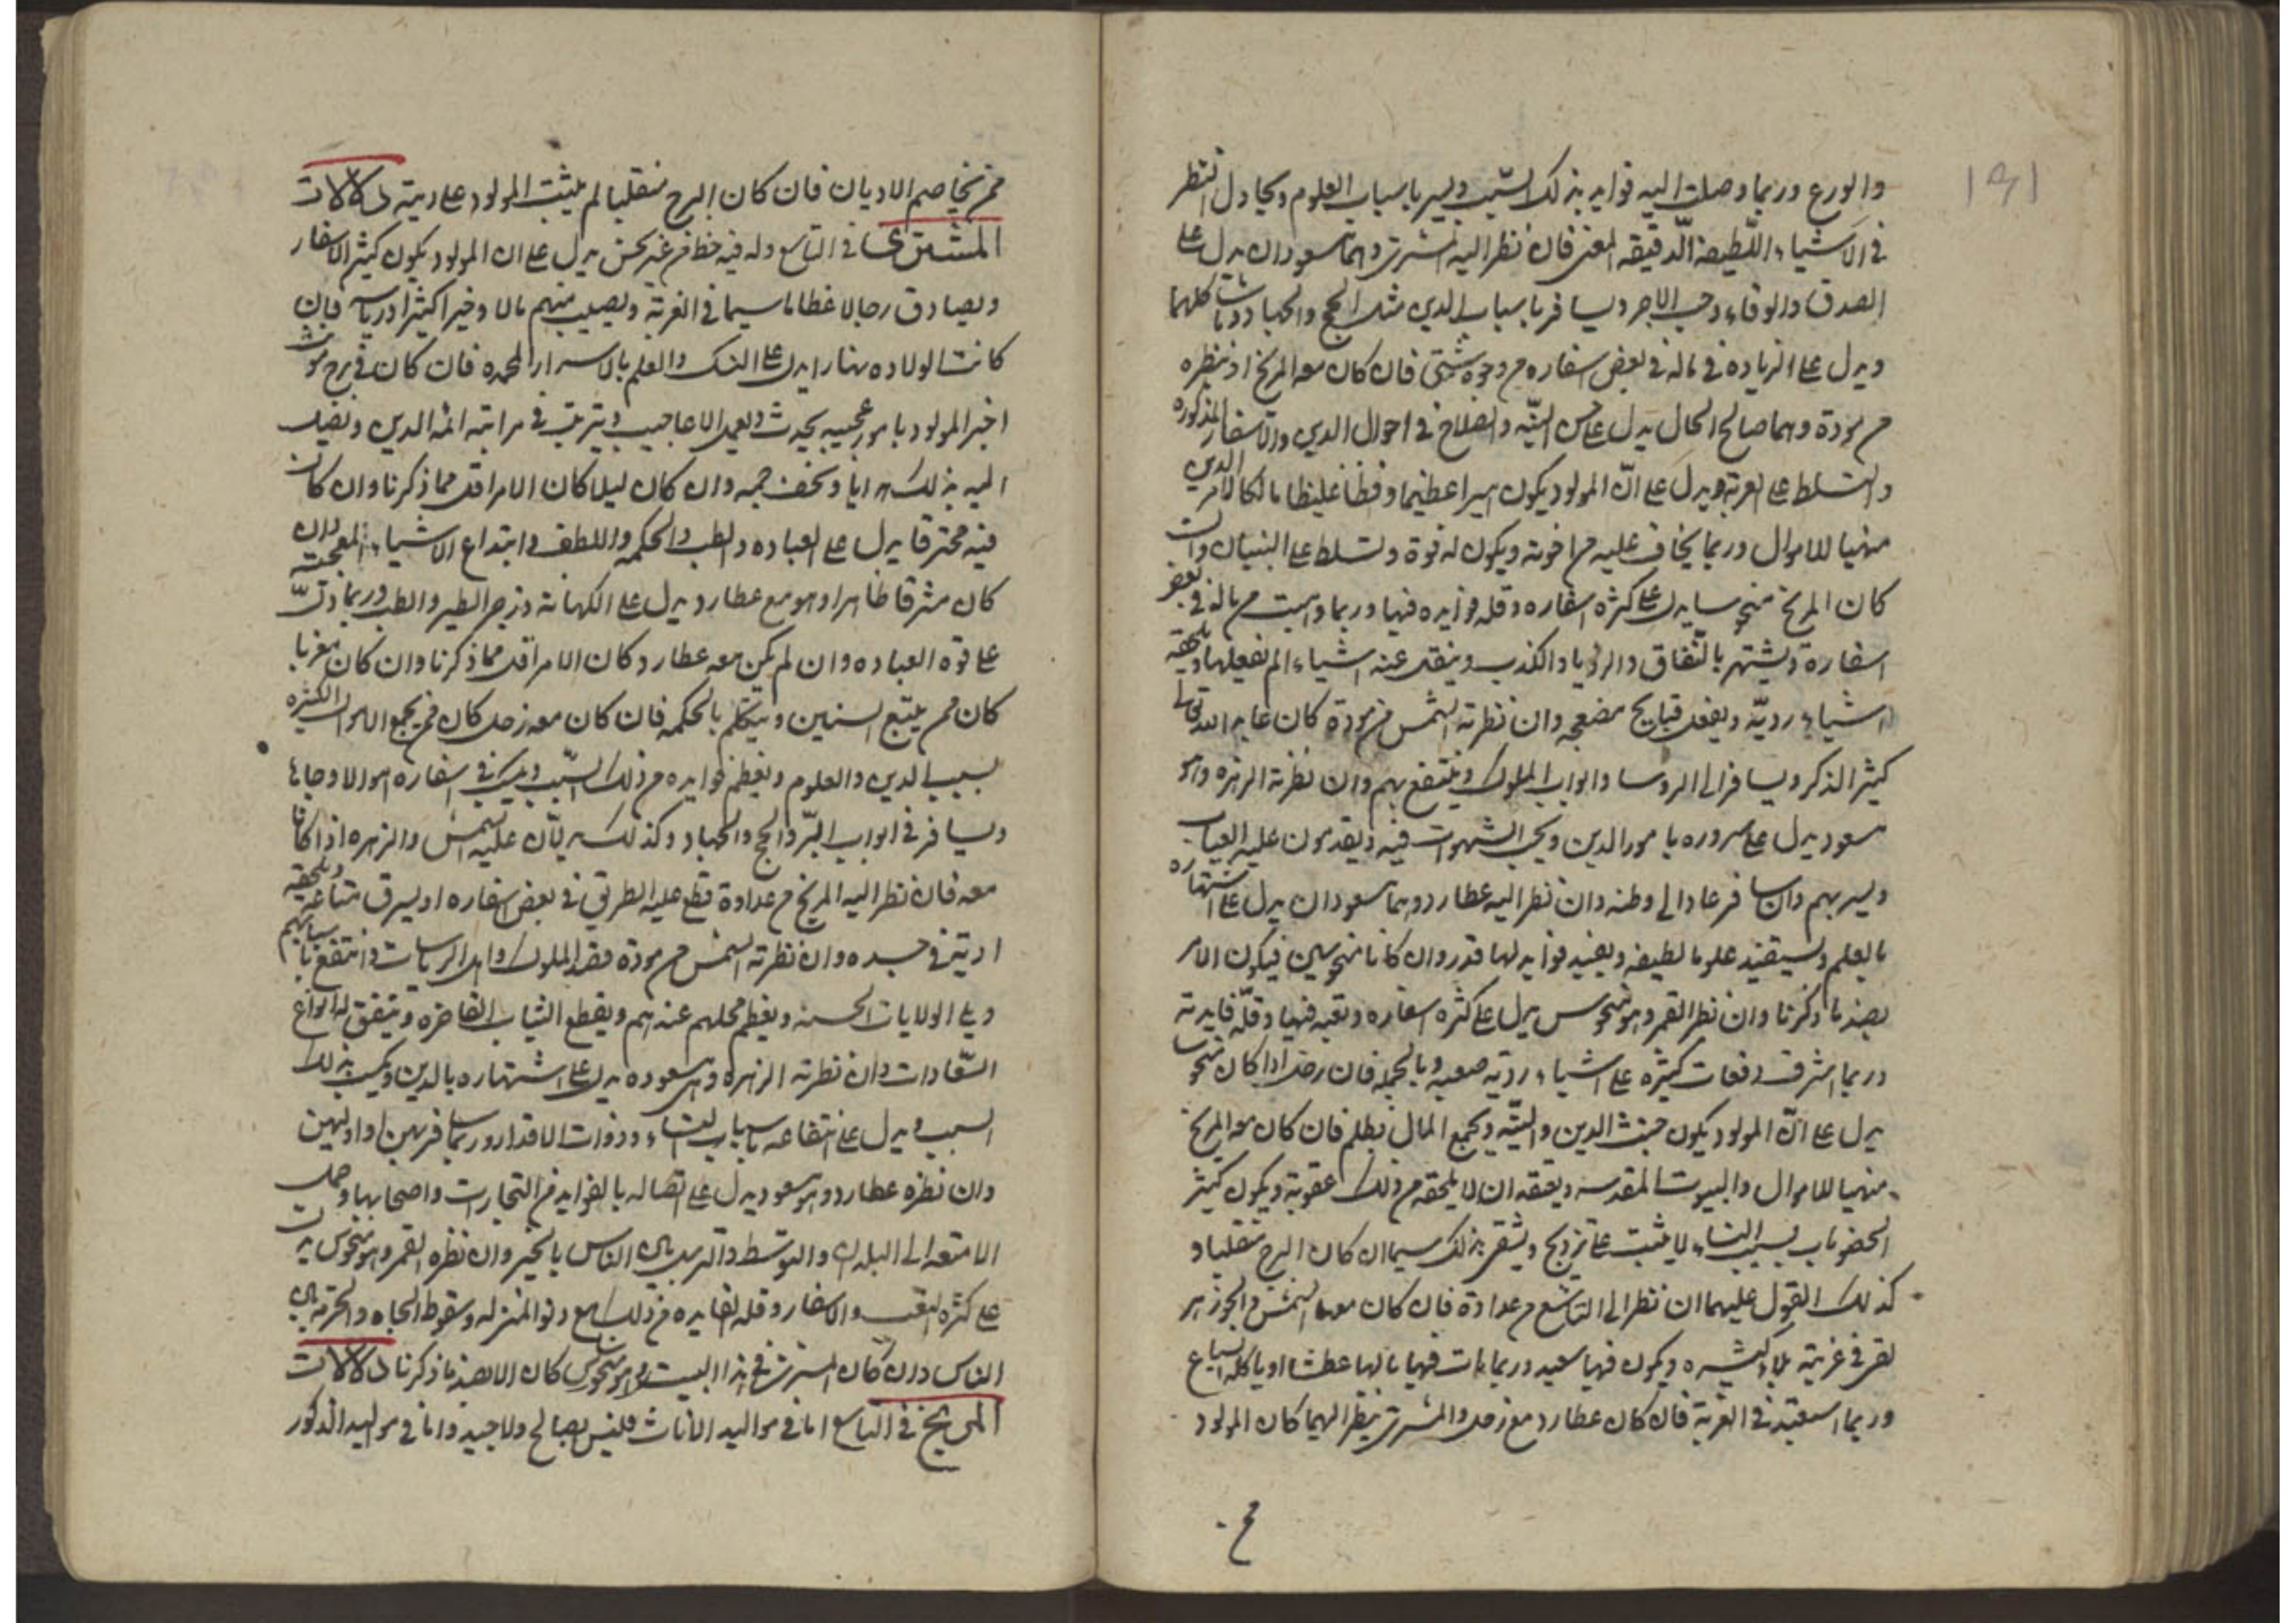 ١٩١
والورع وربما وصلت اليه فوايد بذلك السّبب ويسر باسباب العلوم ويجادل النظر
في الاشياء اللّطيفة الدّقيقه المعنى فان نظر اليه المشترى وهما مسعودان يدل على
الصدق والوفاء وحب الاجر ويسافر باسباب الدين مثل الحج والجهاد وما شاكلهما
ويدل على الزياده في ماله في بعض اسفاره من وجوه شتى فان كان معه المريخ او ينظره
من مودة وهما صالح الحال يدل على حسن النيّه والصلاح في احوال الدين والاسفار المذكوره
والتسلط على الغربة ويدل على انّ المولود يكون اميرا عظيما وفظّا غليظا مالكا لامر الدين
منهبا للاموال وربما يخاف عليه من اخوته ويكون له قوة وتسلط على البنيان وان
كان المريخ منحوسا يدل على كثرة اسفاره وقله فوايده فيها وربما وهبت من ماله في بعض
اسفاره ويشتهر بالنّفاق والريا والكذب وينقل عنه اشياء لم يفعلها ويلحقه
اشياء رديّه ويفعل قبايح مفضحه وان نظرته الشمس من مودة كان عابد الله تعالى
كثير الذكر ويسافر الى الروسا وابواب الملوك وينتفع بهم وان نظرته الزهره وهو
مسعود يدل على سروره بامور الدين ويحب الشهوات فيه ويقدمون عليه الغياب
ويسر بهم وان سافر عاد الى وطنه وان نظر اليه عطارد وهما مسعودان يدل على اشتهاره
بالعلم ويستفيد علوما لطيفه ويفيد فوايد لها قدر وان كانا منحوسين فيكون الامر
بضد ما ذكرنا وان نظر القمر وهو منحوس يدل على كثره اسفاره وتعبه فيها وقلّه فايدته
وربما اشرف دفعات كثيره على اشياء رديّه صعبه وبالجمله فان زحل اذا كان منحوسا
يدل على انّ المولود يكون خبيث الدين والنيّه ويجمع المال بظلم فان كان معه المريخ
منهبا للاموال والبيوت المقدسه ويعتقد ان لا يلحقه من ذلك عقوبة ويكون كثير
الخصومات بسبب النساء لا يثبت على تزويج ويشقى بذلك سيما ان كان البرج منقلبا و
كذلك القول عليهما ان نظرا الى التاسع من عداوة فان كان معهما الشمس والجوزهر
لقى في غربته بلاء كثيره ويكون فيها سعيد وربما مات فيها بالها عطشا او ياكله السباع
وربما استعبد في الغربة فان كان عطارد مع زحل والمشترى ينظر اليهما كان المولود
مح
ممن يخاصم الاديان فان كان البرج منقلبا لم يثبت المولود على دينه دلالات
المشترى في التاسع وله فيه حظ من غير نحس يدل على ان المولود يكون كثير الاسفار
ويصادق رجالا عظاما سيما في الغربة ويصيب منهم مالا وخيرا كثيرا ورياسه فان
كانت الولاده نهارا يدل على النسك والعلم بالاسرار المحمده فان كان في برج مونث
اخبر المولود بامور عجيبه يحدث ويعمل الاعاجيب ويترتب في مراتبه ائمه الدين ويصل
اليه بذلك هدايا وتحف جمه وان كان ليلا كان الامر اقل مما ذكرنا وان كان
فيه محترقا يدل على العباده والطب والحكمه واللطف وابتداع الاشياء المعجبه وان
كان مشرقا ظاهرا وهو مع عطارد يدل على الكهانه وزجر الطير والطب وربما دلّ
على قوه العباده وان لم يكن معه عطارد كان الامر اقل مما ذكرنا وان كان مغربا
كان ممن يتبع السنين ويتكلم بالحكمه فان كان معه زحل كان ممن يجمع الاموال الكثيره
بسبب الدين والعلوم وتعظم فوايده من ذلك السّبب ويكسب في اسفاره اموالا وجاها
ويسافر في ابواب البرّ والحج والجهاد وكذلك يدلّان عليه الشمس والزهره اذا كانا
معه فان نظر اليه المريخ من عداوة قطع عليه الطريق في بعض اسفاره او يسرق متاعه ويلحقه
اذيّة في جسده وان نظرته الشمس من مودة قصد الملوك واهل الرياسات وانتفع باسبابهم
وولى الولايات الحسنه ويعظم محلهم عندهم ويقطع الثياب الفاخره ويتفق له انواع
السّعادات وان نظرته الزهره وهى مسعوده يدل على اشتهاره بالدين ويكسب بذلك
السبب ويدل على انتفاعه باسباب النساء وذوات الاقدار وربما سافر بهن او اولدهن
وان نظره عطارد وهو مسعود يدل على اتصاله بالفوايد من التجارات واصحابها وحمل
الامتعه الى البلدان والتوسط والترسل بين الناس بالخير وان نظره القمر وهو منحوس يدل
على كثره التعب والاسفار وقله الفايده من ذلك مع دنو المنزله وسقوط الجاه والحرمه بين
الناس وان كان المشترى في هذا البيت وهو منحوس كان الامر بضد ما ذكرنا دلالات
المريخ في التاسع اما في مواليد الاناث فليس بصالح ولا جيد واما في مواليد الذكور